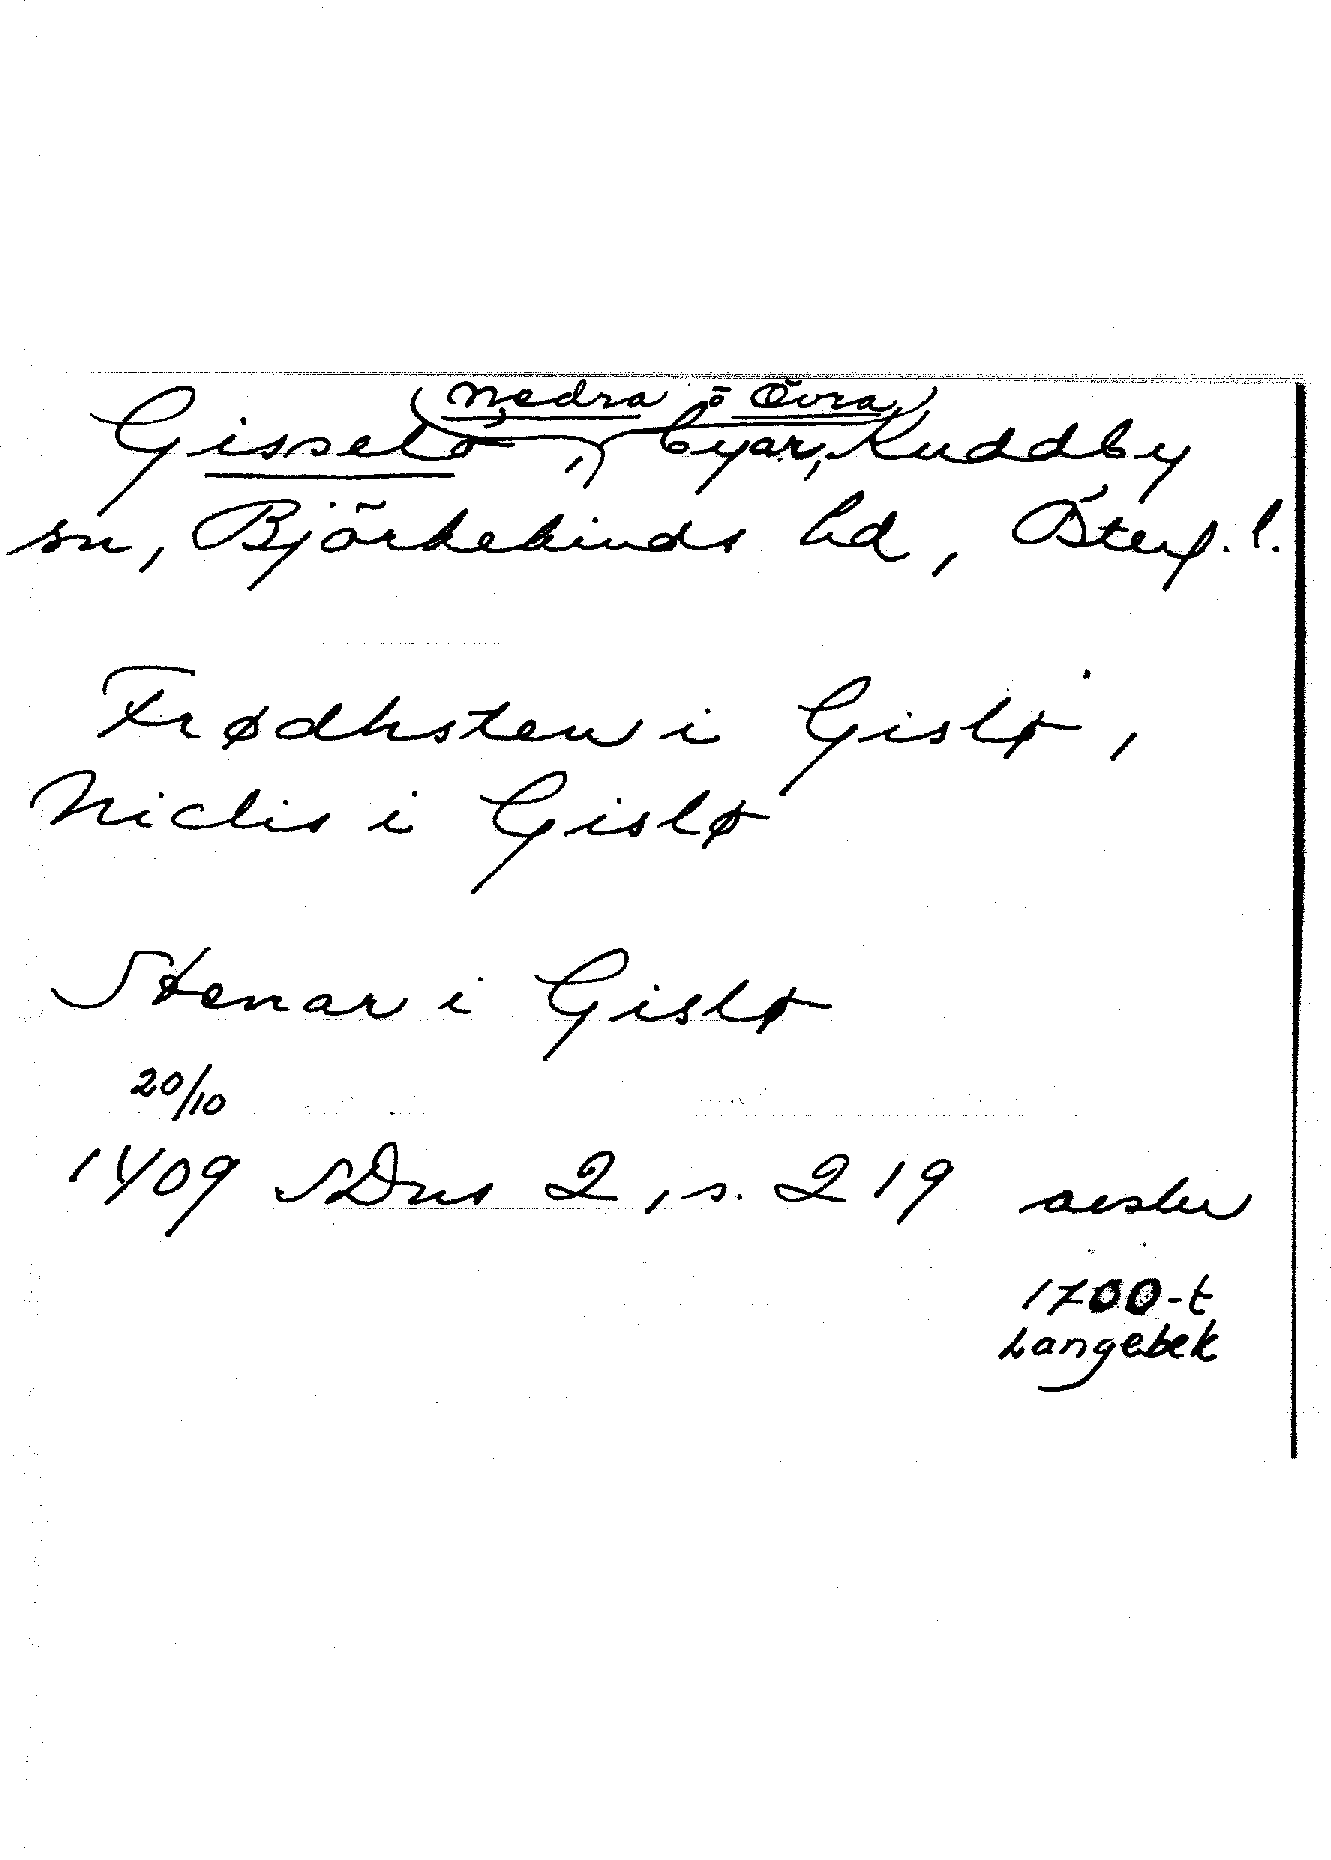 Nedra o Övra
Gisselö, byar, Kuddby
sn, Björkekinds hd, Österg. l.
Frødhsten i Gislø,
Niclis i Gislø
Stenar i Gislø
20/10
1409 SDns 2, s. 219 avskr
1700-t
Langebek